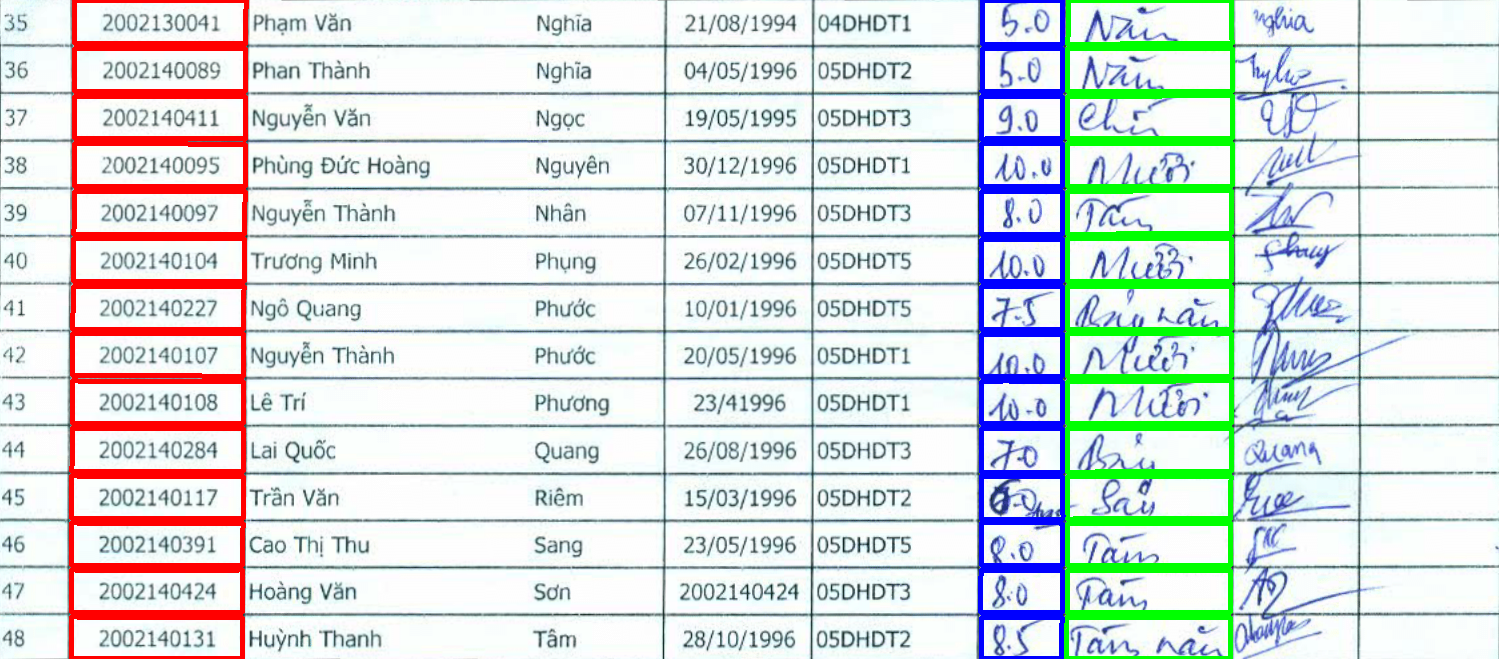 35 2002130041 Phạm Văn Nghĩa 21/08/1994 04DHDT1 5.0 Năm Nghĩa
36 2002140089 Phan Thành Nghĩa 04/05/1996 05DHDT2 5.0 Năm
37 2002140411 Nguyễn Văn Ngọc 19/05/1995 05DHDT3 9.0 Chín
38 2002140095 Phùng Đức Hoàng Nguyên 30/12/1996 05DHDT1 10.0 Mười
39 2002140097 Nguyễn Thành Nhân 07/11/1996 05DHDT3 8.0 Tám
40 2002140104 Trương Minh Phụng 26/02/1996 05DHDT5 10.0 Mười
41 2002140227 Ngô Quang Phước 10/01/1996 05DHDT5 7.5 Bảy năm
42 2002140107 Nguyễn Thành Phước 20/05/1996 05DHDT1 10.0 Mười
43 2002140108 Lê Trí Phương 23/41996 05DHDT1 10.0 Mười
44 2002140284 Lai Quốc Quang 26/08/1996 05DHDT3 7.0 Bảy Quang
45 2002140117 Trần Văn Riêm 15/03/1996 05DHDT2 6.0 Sáu
46 2002140391 Cao Thị Thu Sang 23/05/1996 05DHDT5 8.0 Tám
47 2002140424 Hoàng Văn Sơn 2002140424 05DHDT3 8.0 Tám
48 2002140131 Huỳnh Thanh Tâm 28/10/1996 05DHDT2 8.5 Tám năm